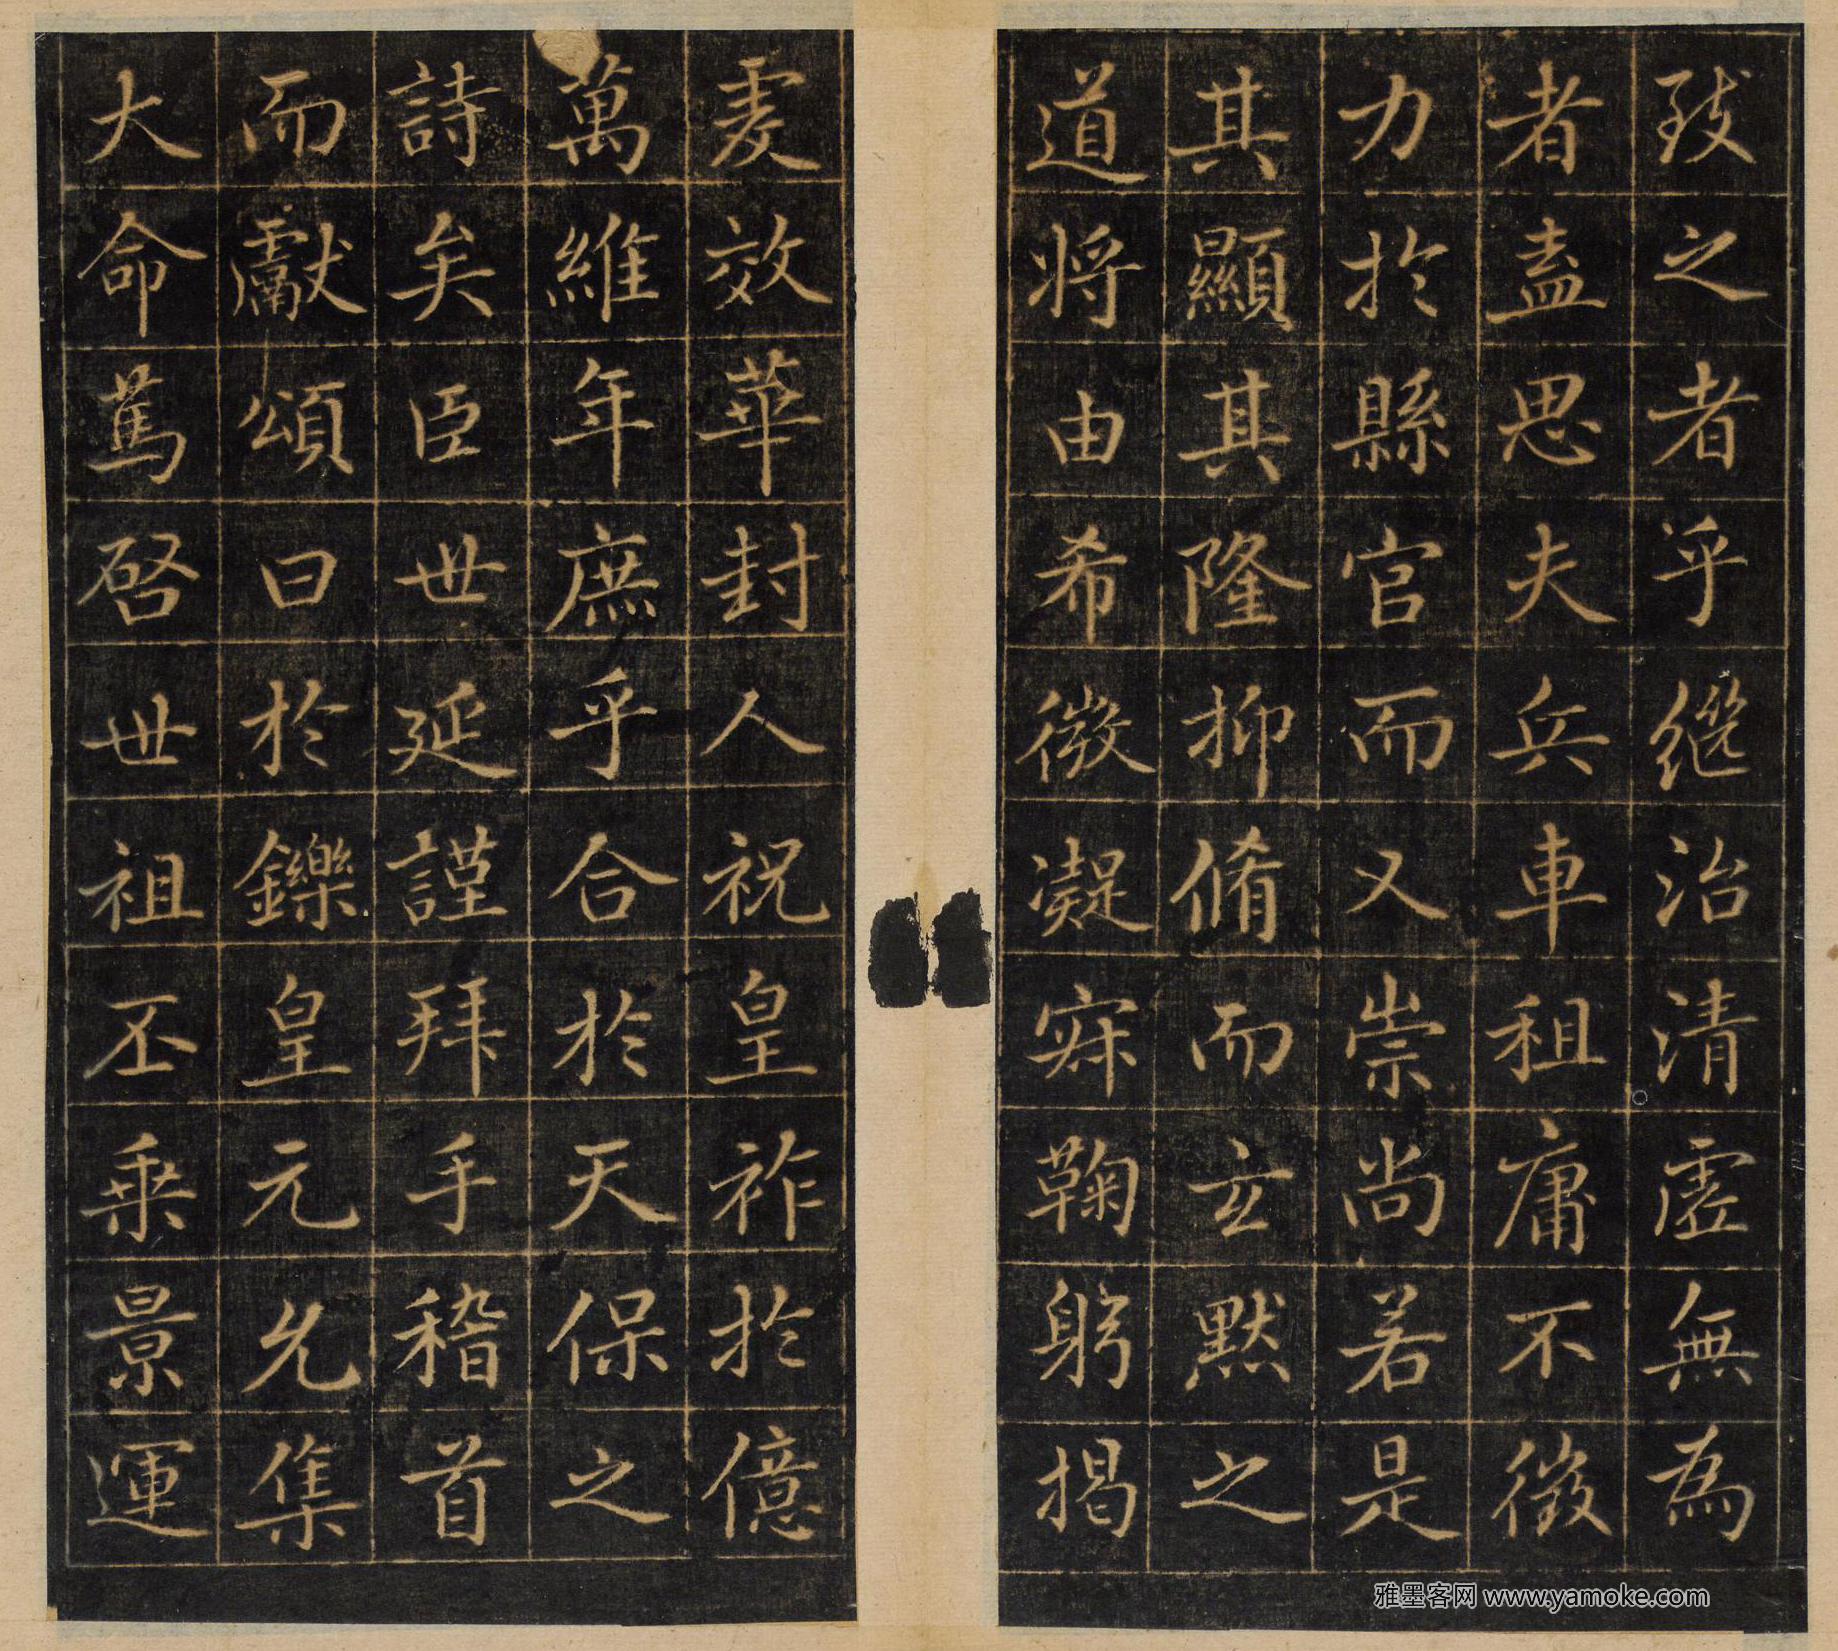 致之者乎繼治清虛無為
者盍思夫兵車租庸不徵
力於縣官而又崇尚若是
其顯其隆抑脩而玄默之
道將由希微凝寂鞠躬揭
虔效華封人祝皇祚於億
萬維年庶乎合於天保之
詩矣臣世延謹拜手稽首
而獻頌曰於鑠皇元允集
大命篤啓世祖丕乘景運
雅墨客网 www.yamoke.com